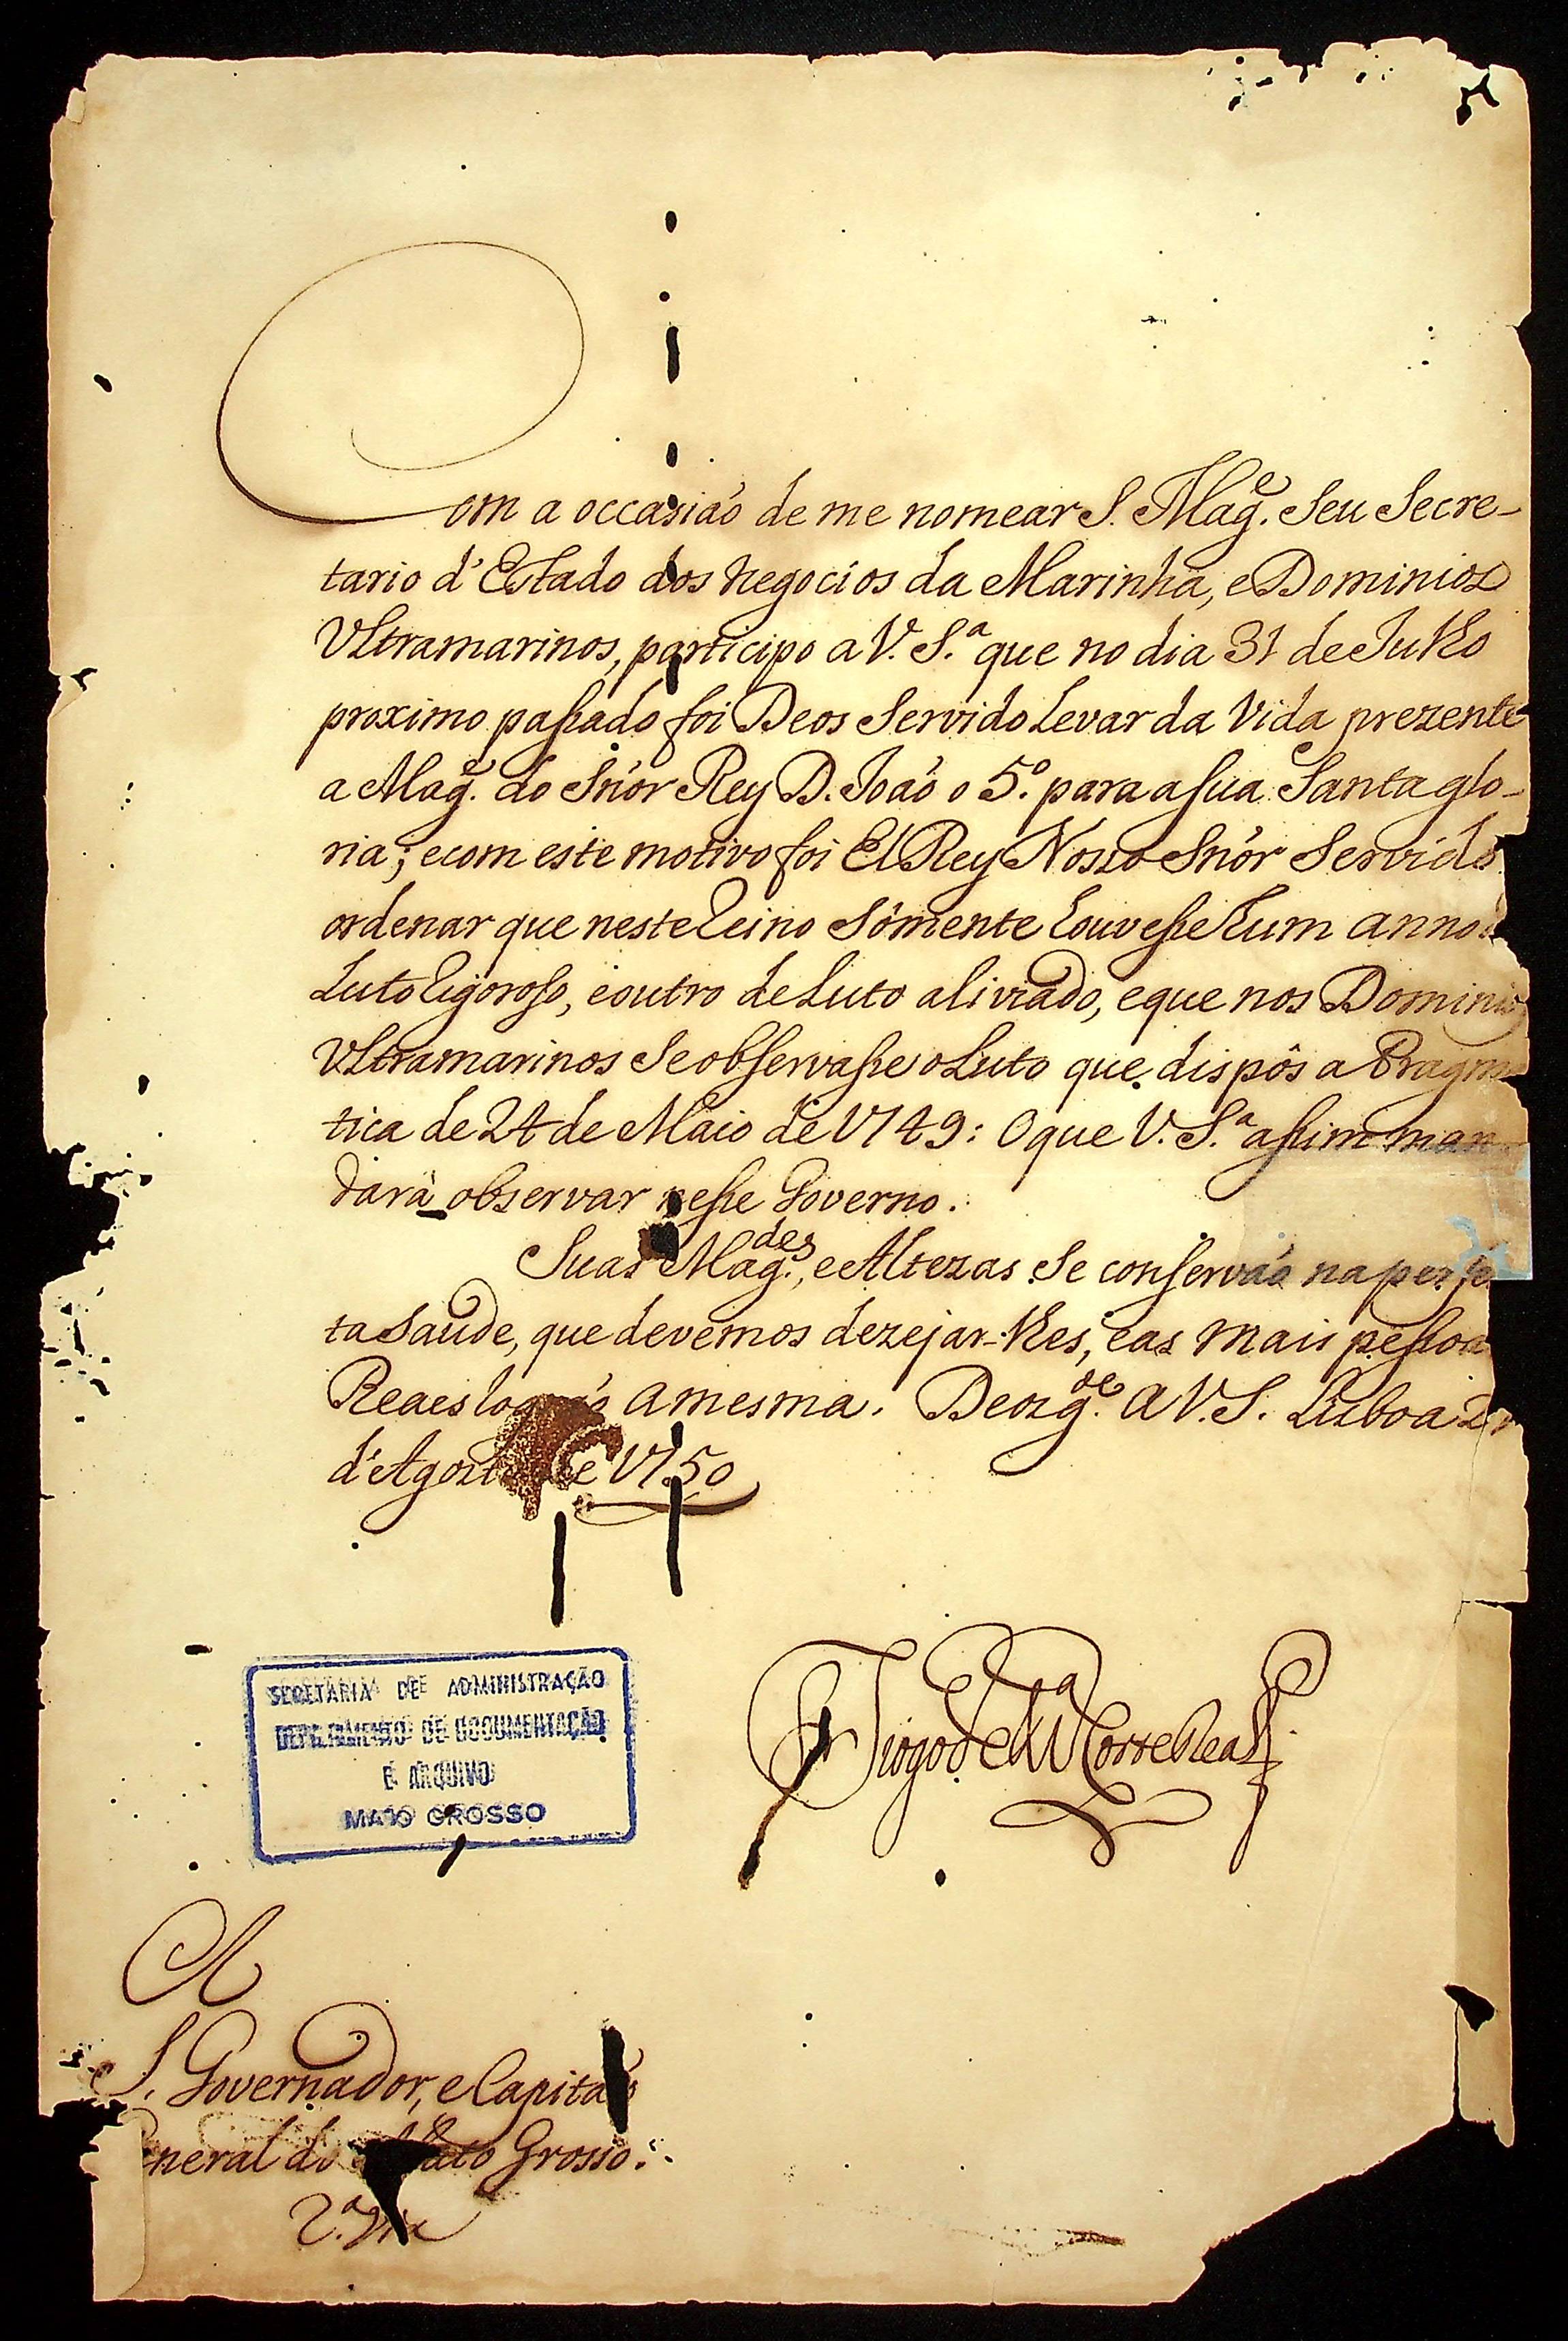 Com a occasiaõ de me nomear S. Mag.e Seu Secre-
tario d'Estado dos Negocios da Marinha, e Dominios
Ultramarinos, participo a V. S.a que no dia 31 de Julho
proximo passado foi Deos Servido Levar da Vida prezente
a Mag.e do Snõr Rey D. Joaõ o 5.o para a sua Santa glo-
ria; e com este motivo foi El Rey Nosso Snõr Servido
ordenar que neste Reino Sómente houvesse hum anno
Luto rigoroso, e outro de Luto aliviado, e que nos Domini
Ultramarinos Se observasse o Luto que dispôs a Pragm
tica de 24 de Maio de 1749: O que V. S.a assim man
dará observar nesse Governo.
Suas Mag.des, e Altezas Se conservaõ na perfe
ta Saude, que devemos dezejar-lhes, e as mais pessoa
Reaes a mesma. Deos g.de a V. S. Lisboa
d'Agosto de 1750
SECRETARIA DE ADMINISTRAÇÃO
DEPARTAMENTO DE DOCUMENTAÇÃO
E ARQUIVO
MATO GROSSO
Diogo de M.ca Corte Real
S. Governador, e Capitaõ
neral do Mato Grosso.
2.a Via